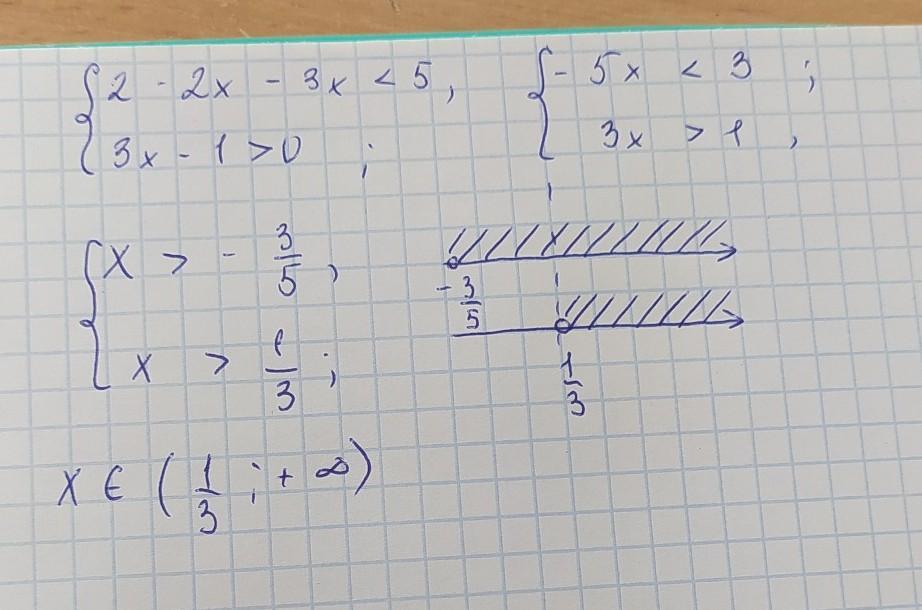 {2 - 2x - 3x < 5,
3x - 1 > 0 ;
{- 5x < 3 ;
3x > 1 ,
{x > - 3/5 ,
x > 1/3 ;
- 3/5
1/3
x ∈ (1/3 ; + ∞)